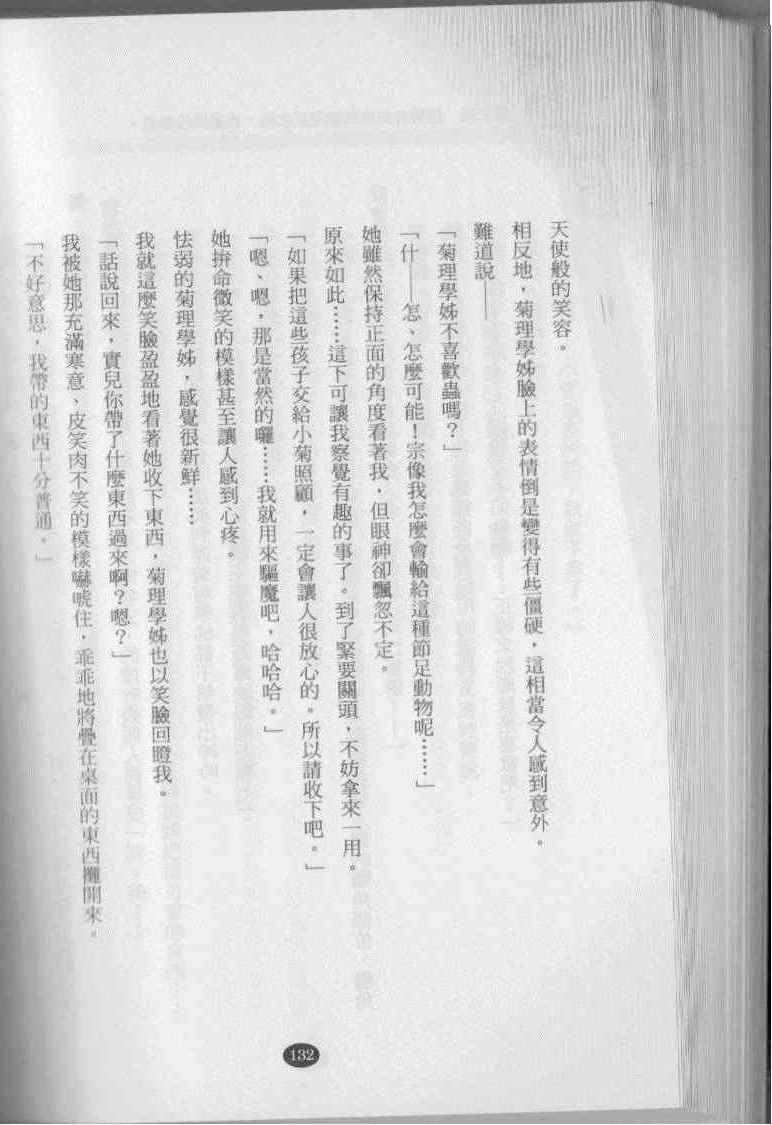 天使般的笑容。
相反地，菊理學姊臉上的表情倒是變得有些僵硬，這相當令人感到意外。
難道說——
「菊理學姊不喜歡蟲嗎？」
「什——怎、怎麼可能！宗像我怎麼會輸給這種節足動物呢……」
她雖然保持正面的角度看著我，但眼神卻飄忽不定。
原來如此……這下可讓我察覺有趣的事了。到了緊要關頭，不妨拿來一用。
「如果把這些孩子交給小菊照顧，一定會讓人很放心的。所以請收下吧。」
「嗯、嗯，那是當然的囉……我就用來驅魔吧，哈哈哈。」
她拚命微笑的模樣甚至讓人感到心疼。
怯弱的菊理學姊，感覺很新鮮……
我就這麼笑臉盈盈地看著她收下東西，菊理學姊也以笑臉回瞪我。
「話說回來，實兒你帶了什麼東西過來啊？嗯？」
我被她那充滿寒意、皮笑肉不笑的模樣嚇唬住，乖乖地將疊在桌面的東西攤開來。
「不好意思，我帶的東西十分普通。」
132